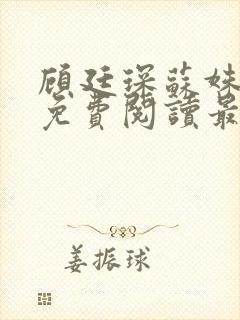 顾廷琛蘇妹
免費閱讀最
姜振球